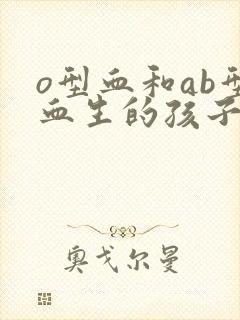 o型血和ab型
血生的孩子
奥戈尔曼